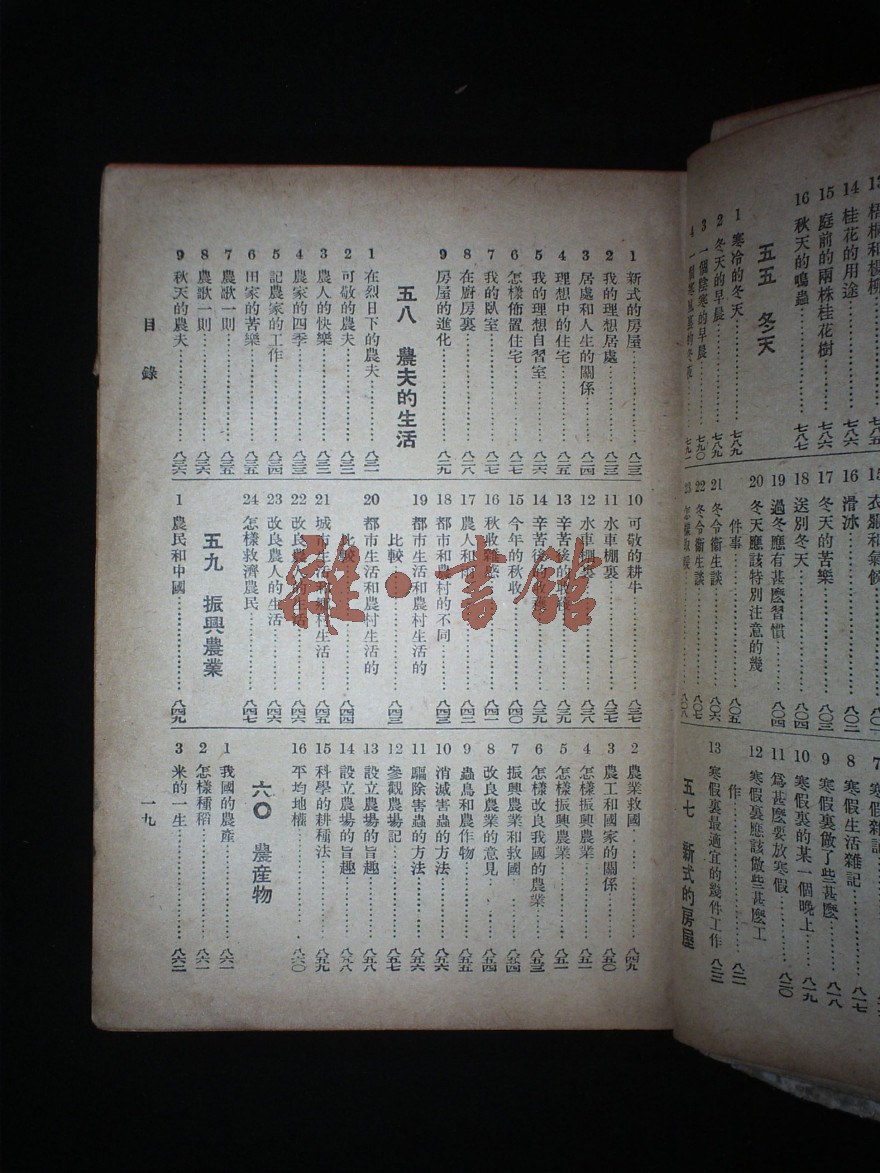 13 梧桐和楊柳
14 桂花的用途……七八六
15 庭前的兩株桂花樹……七八六
16 秋天的鳴蟲……七八七
五五 冬天
1 寒冷的冬天……七八九
2 冬天的早晨……七八九
3 一個陰寒的早晨……七九〇
4 一個寒風裏的冬夜……七九一
15 衣服和氣候
16 滑冰……八〇二
17 冬天的苦樂……八〇三
18 送別冬天……八〇四
19 過冬應有甚麼習慣……八〇四
20 冬天應該特別注意的幾
件事……八〇五
21 冬令衞生談……八〇六
22 冬令衞生談……八〇七
23 怎樣取暖……八〇八
7 寒假雜記
8 寒假生活雜記……八一七
9 寒假裏做了些甚麼……八一八
10 寒假裏的某一個晚上……八一九
11 爲甚麼要放寒假……八二〇
12 寒假裏應該做些甚麼工
作……八二一
13 寒假裏最適宜的幾件工作……八二二
五七 新式的房屋
1 新式的房屋……八二三
2 我的理想居處……八二三
3 居處和人生的關係……八二四
4 理想中的住宅……八二五
5 我的理想自習室……八二六
6 怎樣佈置住宅……八二七
7 我的臥室……八二七
8 在廚房裏……八二八
9 房屋的進化……八二九
五八 農夫的生活
1 在烈日下的農夫……八三一
2 可敬的農夫……八三二
3 農人的快樂……八三二
4 農家的四季……八三三
5 記農家的工作……八三四
6 田家的苦樂……八三五
7 農歌一則……八三五
8 農歌一則……八三六
9 秋天的農夫……八三六
10 可敬的耕牛……八三七
11 水車棚裏……八三七
12 水車棚裏……八三八
13 辛苦後的收穫……八三九
14 辛苦後的收穫……八三九
15 今年的秋收……八四〇
16 秋收雜感……八四一
17 農人和雨……八四二
18 都市和農村的不同……八四三
19 都市生活和農村生活的
比較……八四三
20 都市生活和農村生活的
比較……八四四
21 城市生活和鄉村生活……八四五
22 改良農人的生活……八四六
23 改良農人的生活……八四六
24 怎樣救濟農民……八四七
五九 振興農業
1 農民和中國……八四九
2 農業救國……八四九
3 農工和國家的關係……八五〇
4 怎樣振興農業……八五一
5 怎樣振興農業……八五一
6 怎樣改良我國的農業……八五三
7 振興農業和救國……八五四
8 改良農業的意見……八五四
9 蟲鳥和農作物……八五五
10 消滅害蟲的方法……八五六
11 驅除害蟲的方法……八五六
12 參觀農場記……八五七
13 設立農場的旨趣……八五八
14 設立農場的旨趣……八五八
15 科學的耕種法……八五九
16 平均地權……八六〇
六〇 農產物
1 我國的農產……八六一
2 怎樣種稻……八六一
3 米的一生……八六二
目錄
一九
雜·書館